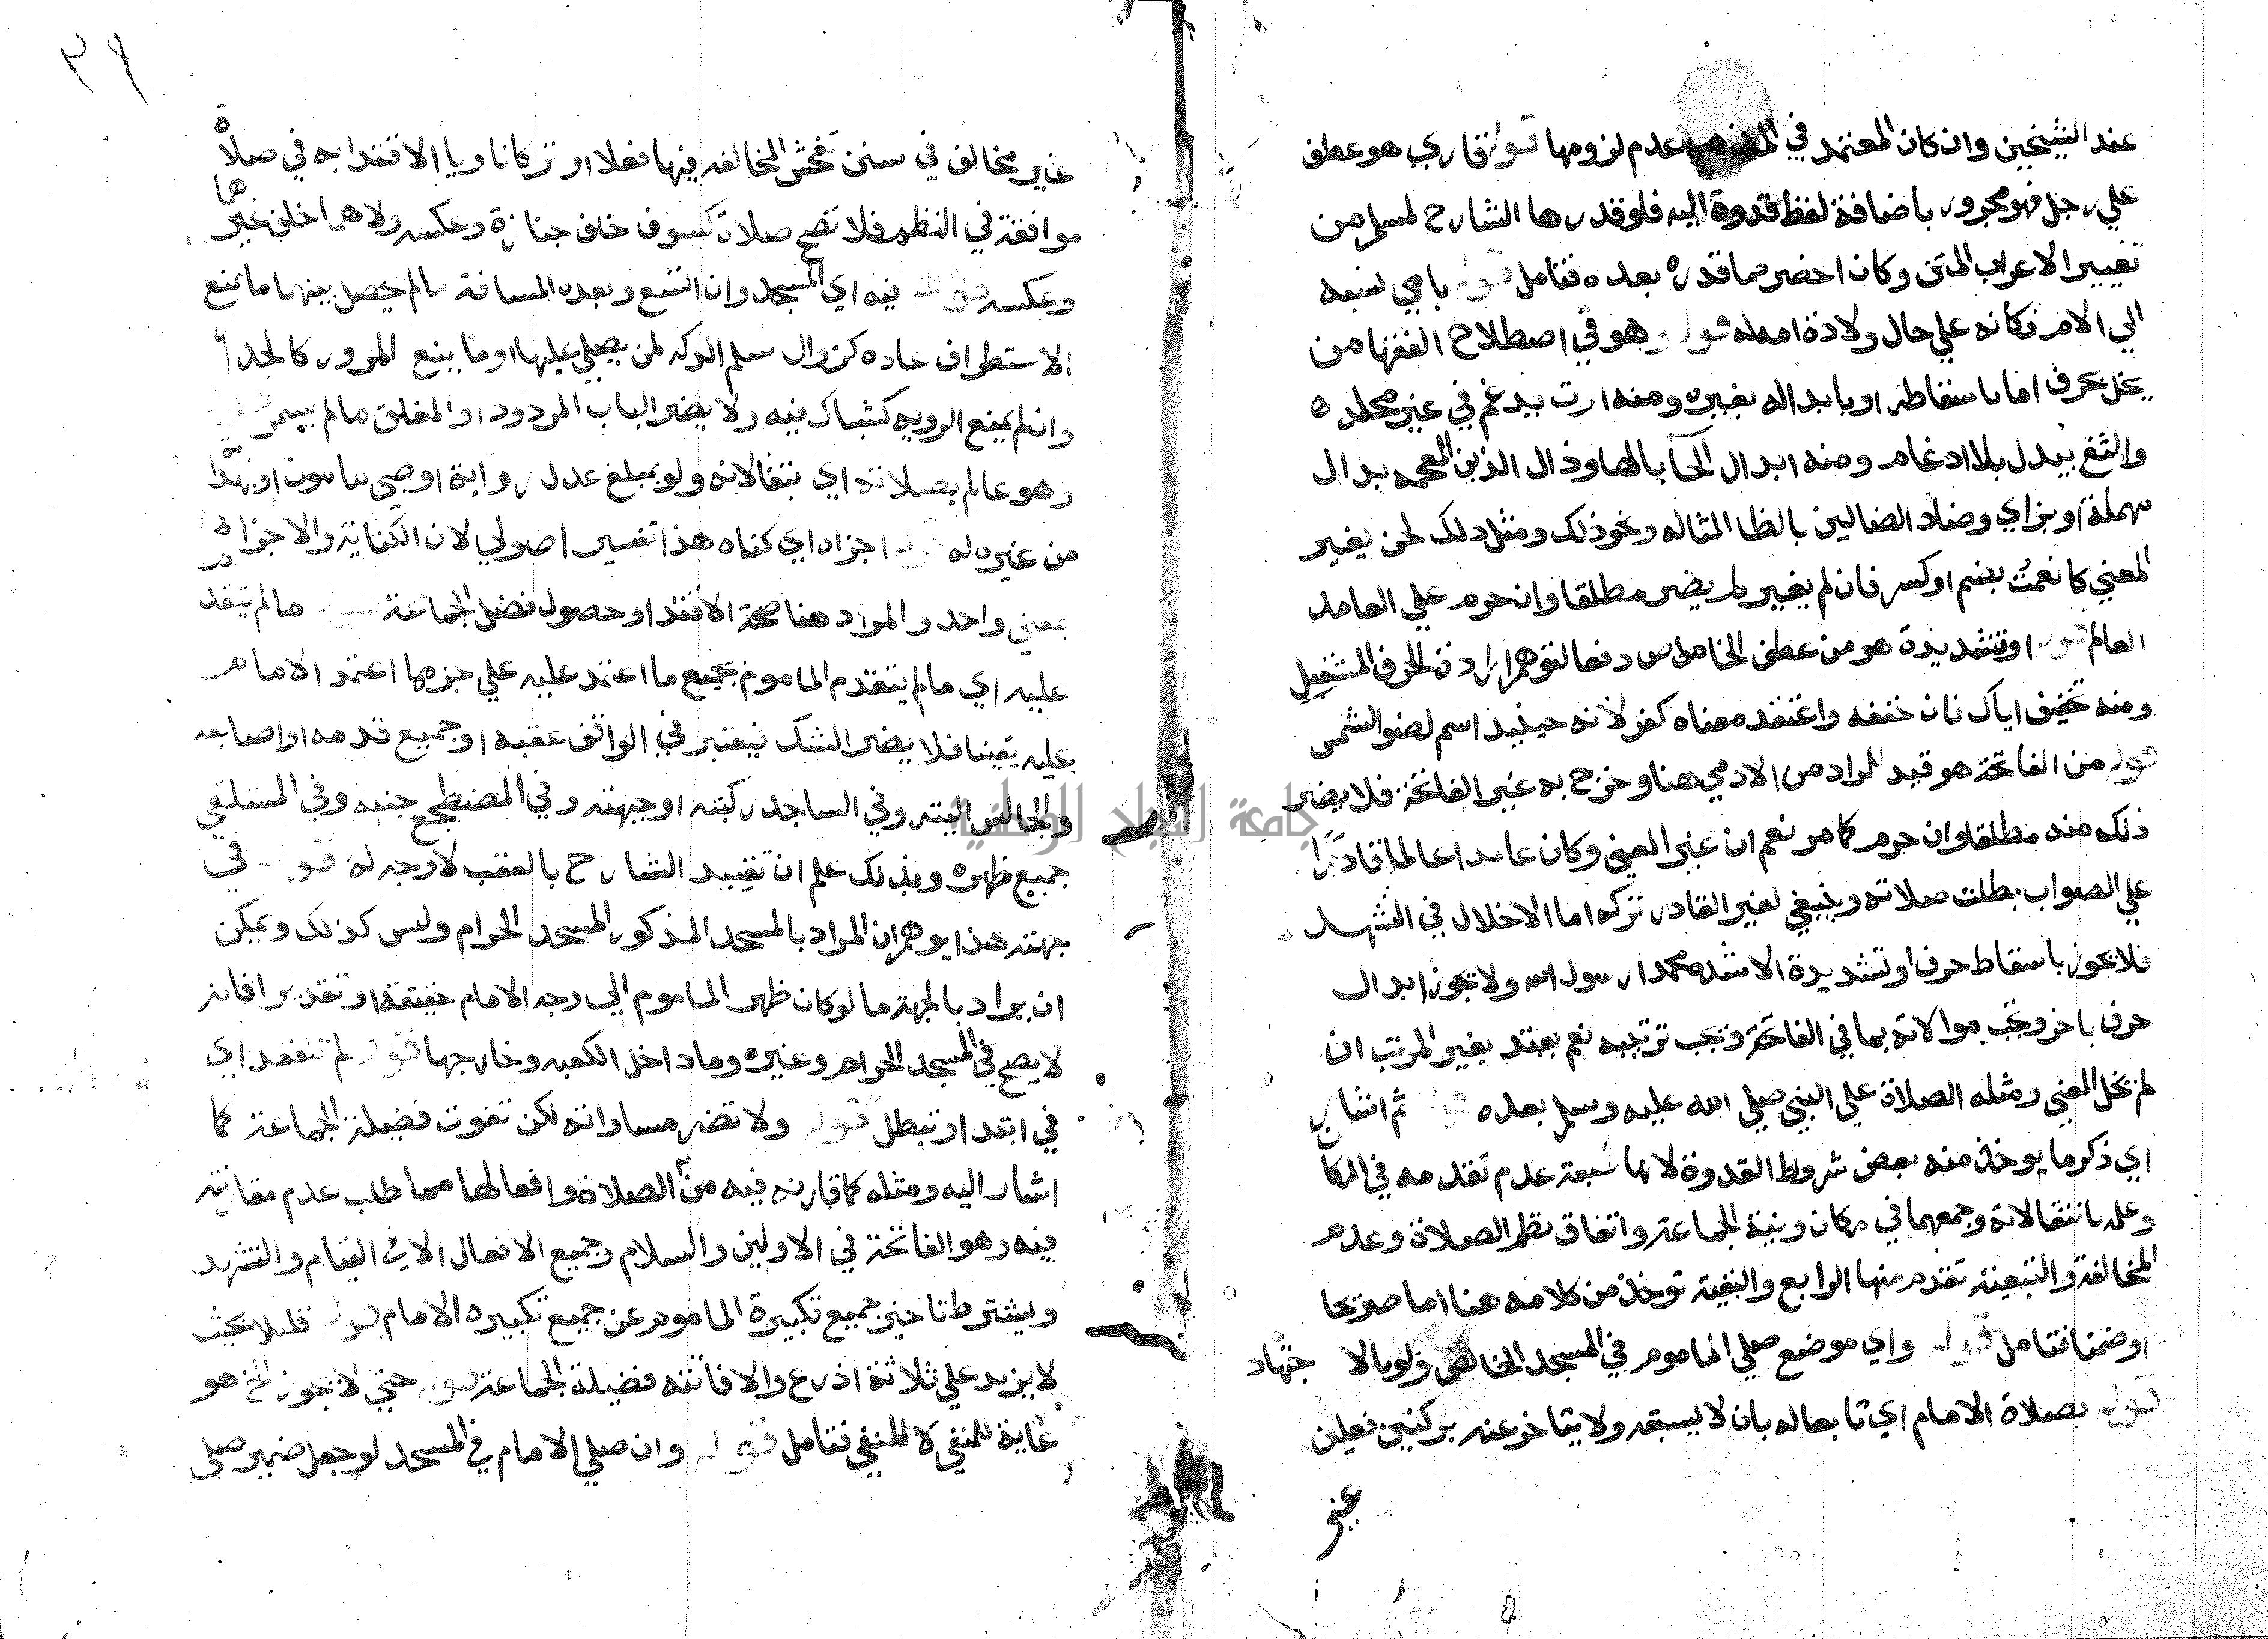 عند الشيخين وان كان المعتمد في المذهب عدم لزومها قوله قاري هو عطف
علي رجل فهو مجرور باضافة لفظ قدوة اليه فلو قدرها الشارح لسلم من
تغيير الاعراب المتن وكان اخصر مما قدره بعده فتامل قوله بامي نسبه
الي الام فكانه علي حال ولادة امه له قوله وهو في اصطلاح الفقها من
يخل بحرف اما باسقاطه او بابداله بغيره ومنه ارت يدغم في غير محله
والثغ يبدل بلا ادغام ومنه ابدال الحا بالها وذال الذين المعجمه بدال
مهملة او بزاي وضاد الضالين بالظا المثاله ونحو ذلك ومثل ذلك لحن يغير
المعني كانعمت بضم او كسر فان لم يغير لم يضر مطلقا وان حرم علي العامد
العالم قوله او تشديدة هو من عطف الخاص دفعا لتوهم ارادة الحرف المستقل
ومنه تخفيف اياك فان خففه واعتقد معناه كفر لانه حينيد اسم لضو الشمس
قوله من الفاتحة هو قيد للمراد من الامي هنا وخرج به غير الفاتحة فلا يضر
ذلك منه مطلقا وان حرم كما مر نعم ان غير المعني وكان عامدا عالما قادرا
علي الصواب بطلت صلاته وينبغي لغير القادر تركه اما الاخلال في التشهد
فلا يجوز باسقاط حرف او تشديدة الا شدة محمدا رسول الله ولا يجوز ابدال
حرف باخر وتجب موالاته بما في الفاتحة وتجب ترتيبه نعم يعتد بغير المرتب ان
لم تخل المعني ومثله الصلاة علي النبي صلي الله عليه وسلم بعده قوله ثم اشار
اي ذكر ما يوخذ منه بعض شروط القدوة لانها سبعة عدم تقدمه في المكان
وعلمه بانتقالاته وجمعهما في مكان ونية الجماعة واتفاق نظم الصلاة وعدم
المخالفة والتبعية تقدم منها الرابع والبقية توخذ من كلامه هنا اما صريحا
او ضمنا فتامل قوله واي موضع صلي الماموم في المسجد الخالص ولو بالاجتهاد
قوله بصلاة الامام اي تابعا له بان لا يسبقه ولا يتاخر عنه بركنين فعلين
غير
٣٩
غير مخالف في سنن تفحش المخالفه فيها فعلا او تركا ناويا الاقتدا به في صلاة
موافقة في النظم فلا تصح صلاة كسوف خلف جنازة وعكسه ولا هما خلف غيرهما
وعكسه قوله فيه اي المسجد وان اتسع وبعده المسافة ما لم يحصل بينهما ما يمنع
الاستطراق عاده كزوال سلم الدكه لمن يصلي عليها او ما يمنع المرور كالجدار
وان لم يمنع الرويه كشباك فيه ولا يضر الباب المردود او المغلق ما لم يسمر قوله
وهو عالم بصلاته اي بتقالاته ولو بمبلغ عدل رواية او صبي مامون او بهدا
من غيره له قوله اجزاه اي كفاه هذا تفسير اصولي لان الكفاية والاجزاء
بمعني واحد والمراد هنا صحة الاقتدا وحصول فضل الجماعة قوله ما لم يتقدم
عليه اي ما لم يتقدم الماموم بجميع ما اعتمد عليه علي جزء مما اعتمد الامام
عليه يقينا فلا يضر الشك فيعتبر في الواقف عقبه او جميع قدمه او اصابعه
والجالس اليته وفي الساجد ركبته او جبهته وفي المضطجع جنبه وفي المستلقي
جميع ظهره وبذلك علم ان تقييد الشارح بالعقب لا وجه له قوله في
جهته هذا يوهم ان المراد بالمسجد المذكور المسجد الحرام وليس كذلك ويمكن
ان يراد بالجهة ما لو كان ظهر الماموم الي وجه الامام حقيقة او تقديرا فانه
لا يصح في المسجد الحرام وغيره وما داخل الكعبه وخارجها قوله لم تنعقد اي
في ابتدا او تبطل قوله ولا تضر مساواته لكن تفوت فضيلة الجماعة كما
اشار اليه ومثله كما قارنه فيه من الصلاة وافعالها مما طلب عدم مقارنته
فيه وهو الفاتحة في الاولين والسلام وجميع الافعال الا في القيام والتشهد
ويشترط تاخير جميع تكبيرة الماموم عن جميع تكبيره الامام قوله قليلا بحيث
لا يزيد علي ثلاثة اذرع والا فاتته فضيلة الجماعة قوله حتي لا يجوز الخ هو
غاية للمنفي لا للنفي فتامل قوله وان صلي الامام في المسجد لو جعل ضمير صلي